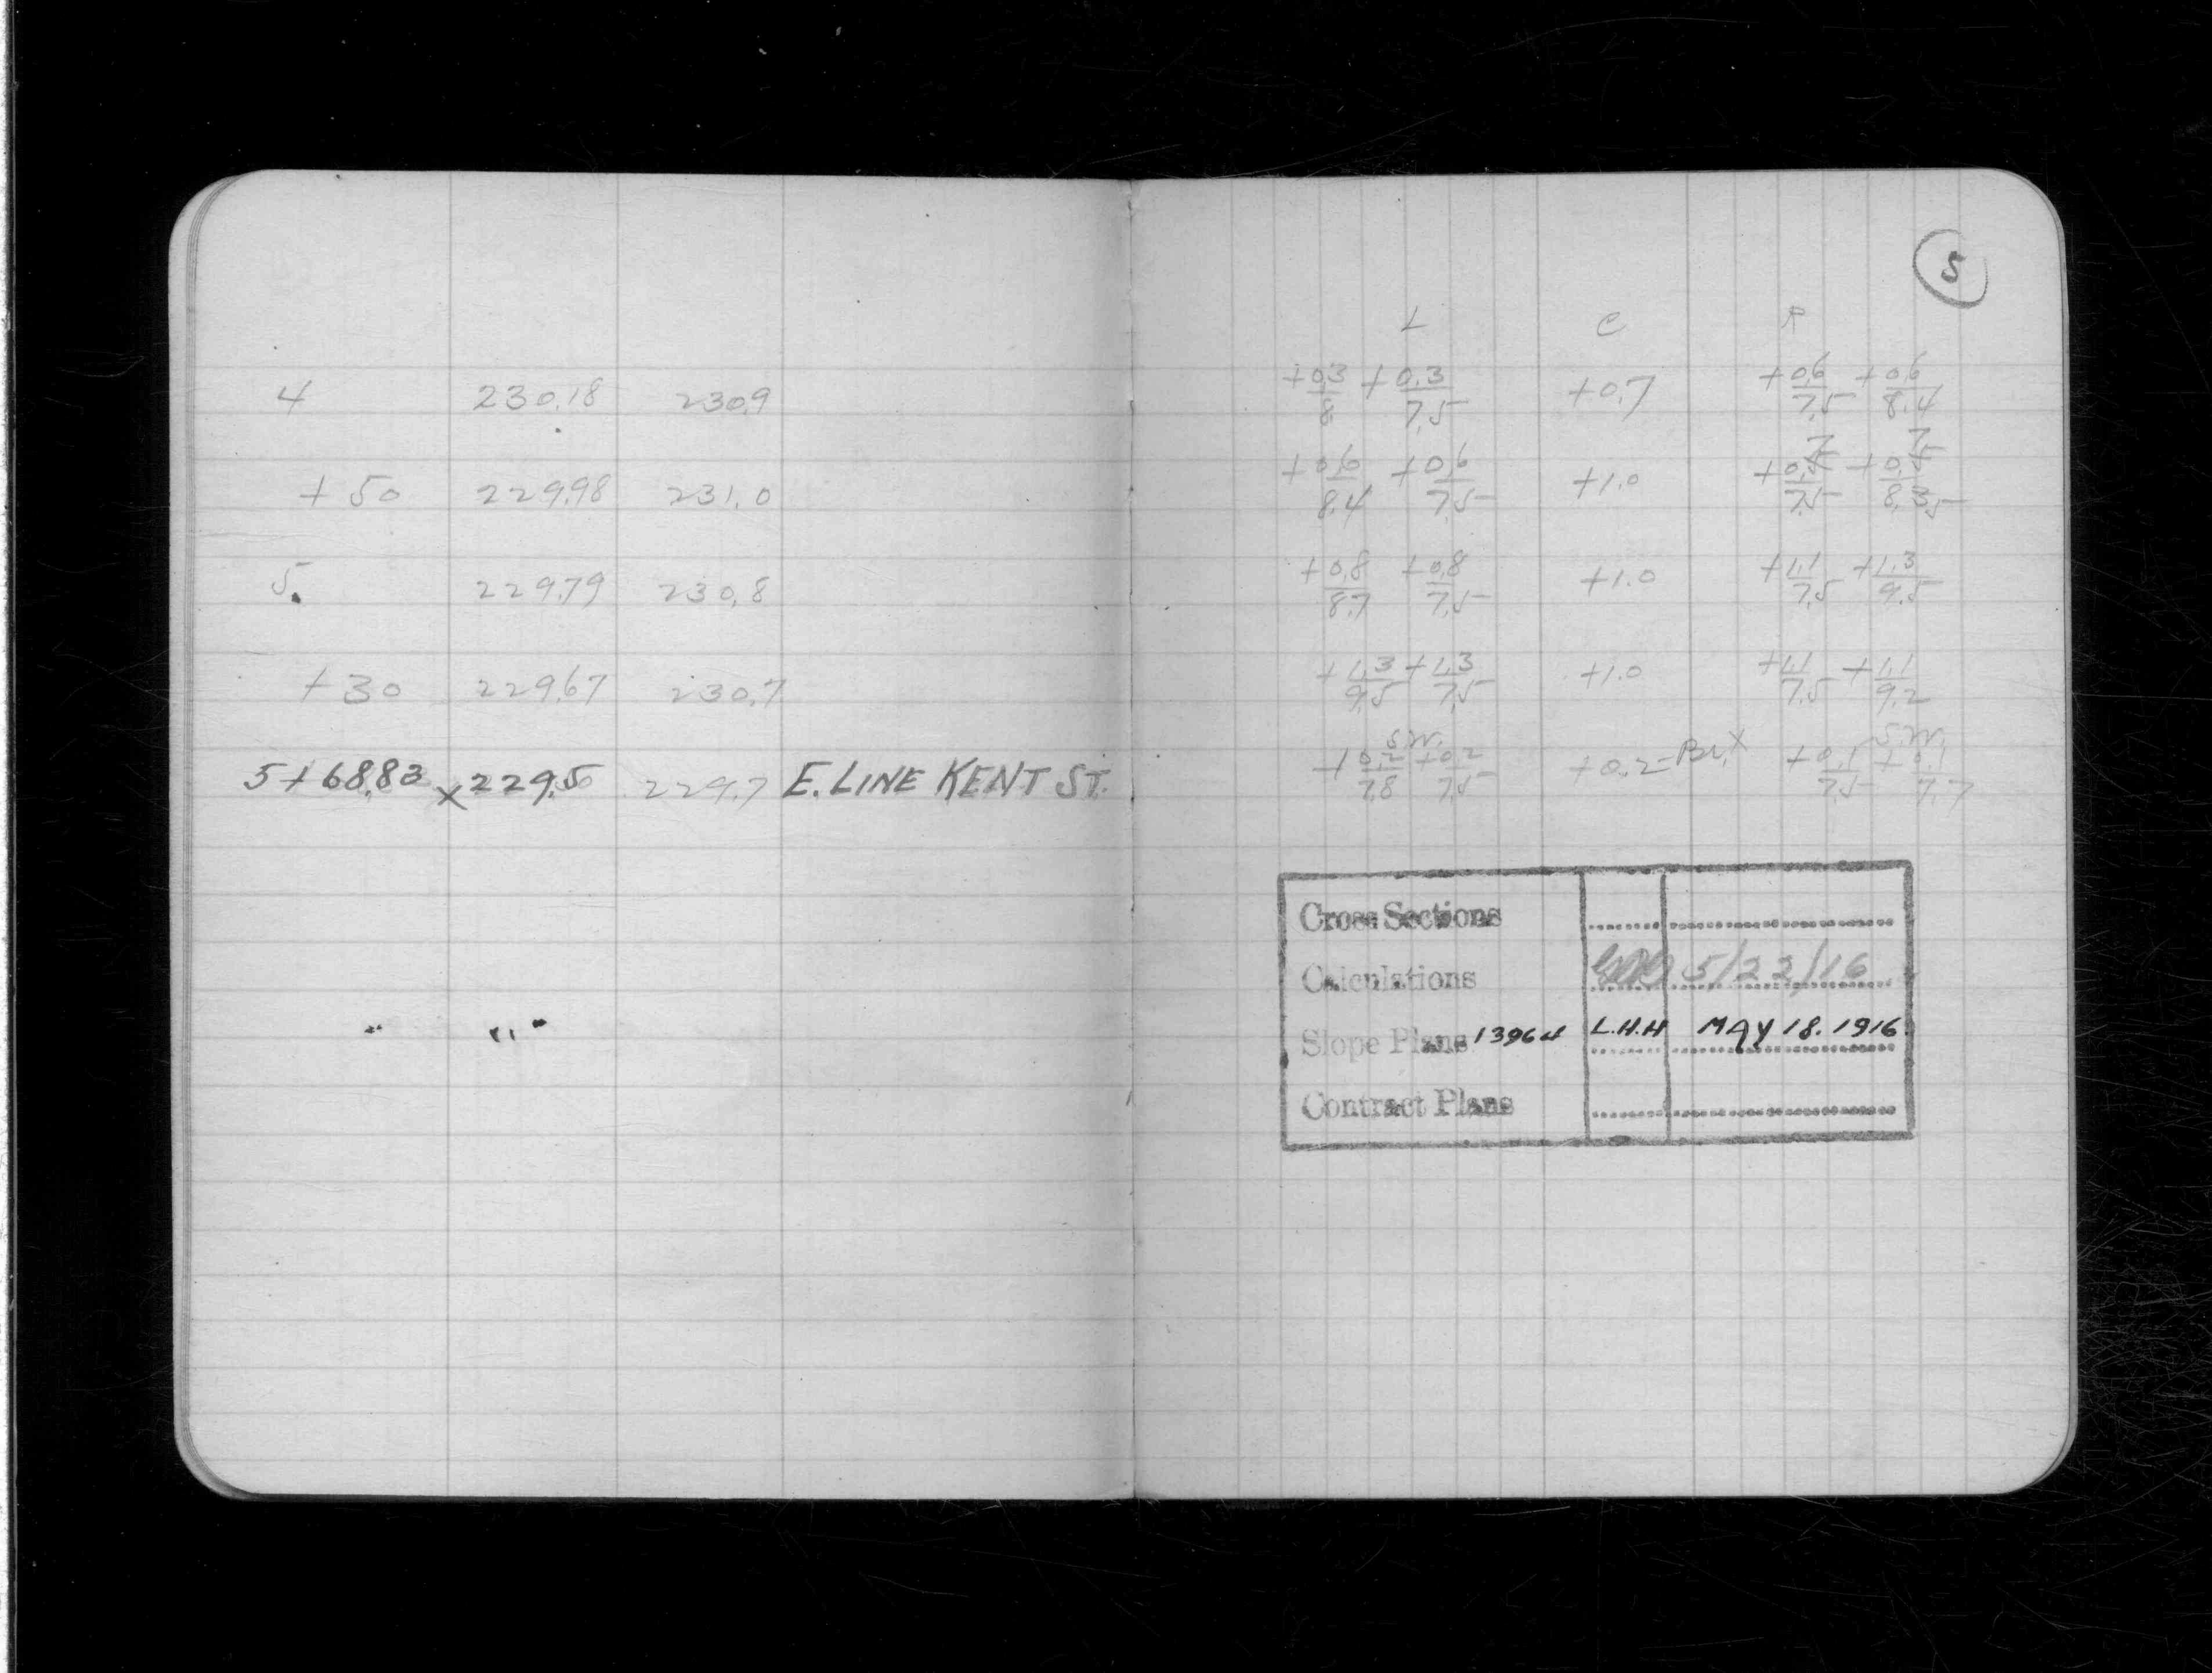 4 230.18 230.9
+50 229.98 231.0
5 229.79 230.8
+30 229.67 230.7
5+68.83 x 229.5 229.7 E. LINE KENT ST.
5
L C R
+0.3/8 +0.3/7.5 +0.7 +0.6/7.5 +0.6/8.4
+0.6/8.4 +0.6/7.5 +1.0 +0.7/7.5 +0.7/8.35
+0.8/8.7 +0.8/7.5 +1.0 +1.1/7.5 +1.3/9.5
+1.3/9.5 +1.3/7.5 +1.0 +1.1/7.5 +1.1/9.2
S.W. S.W.
+0.2/7.8 +0.2/7.5 +0.2 +0.1/7.5 +0.1/7.7
Cross Sections
Calculations 5/22/16
Slope Plans 13964 L.H.H MAY 18. 1916.
Contract Plans